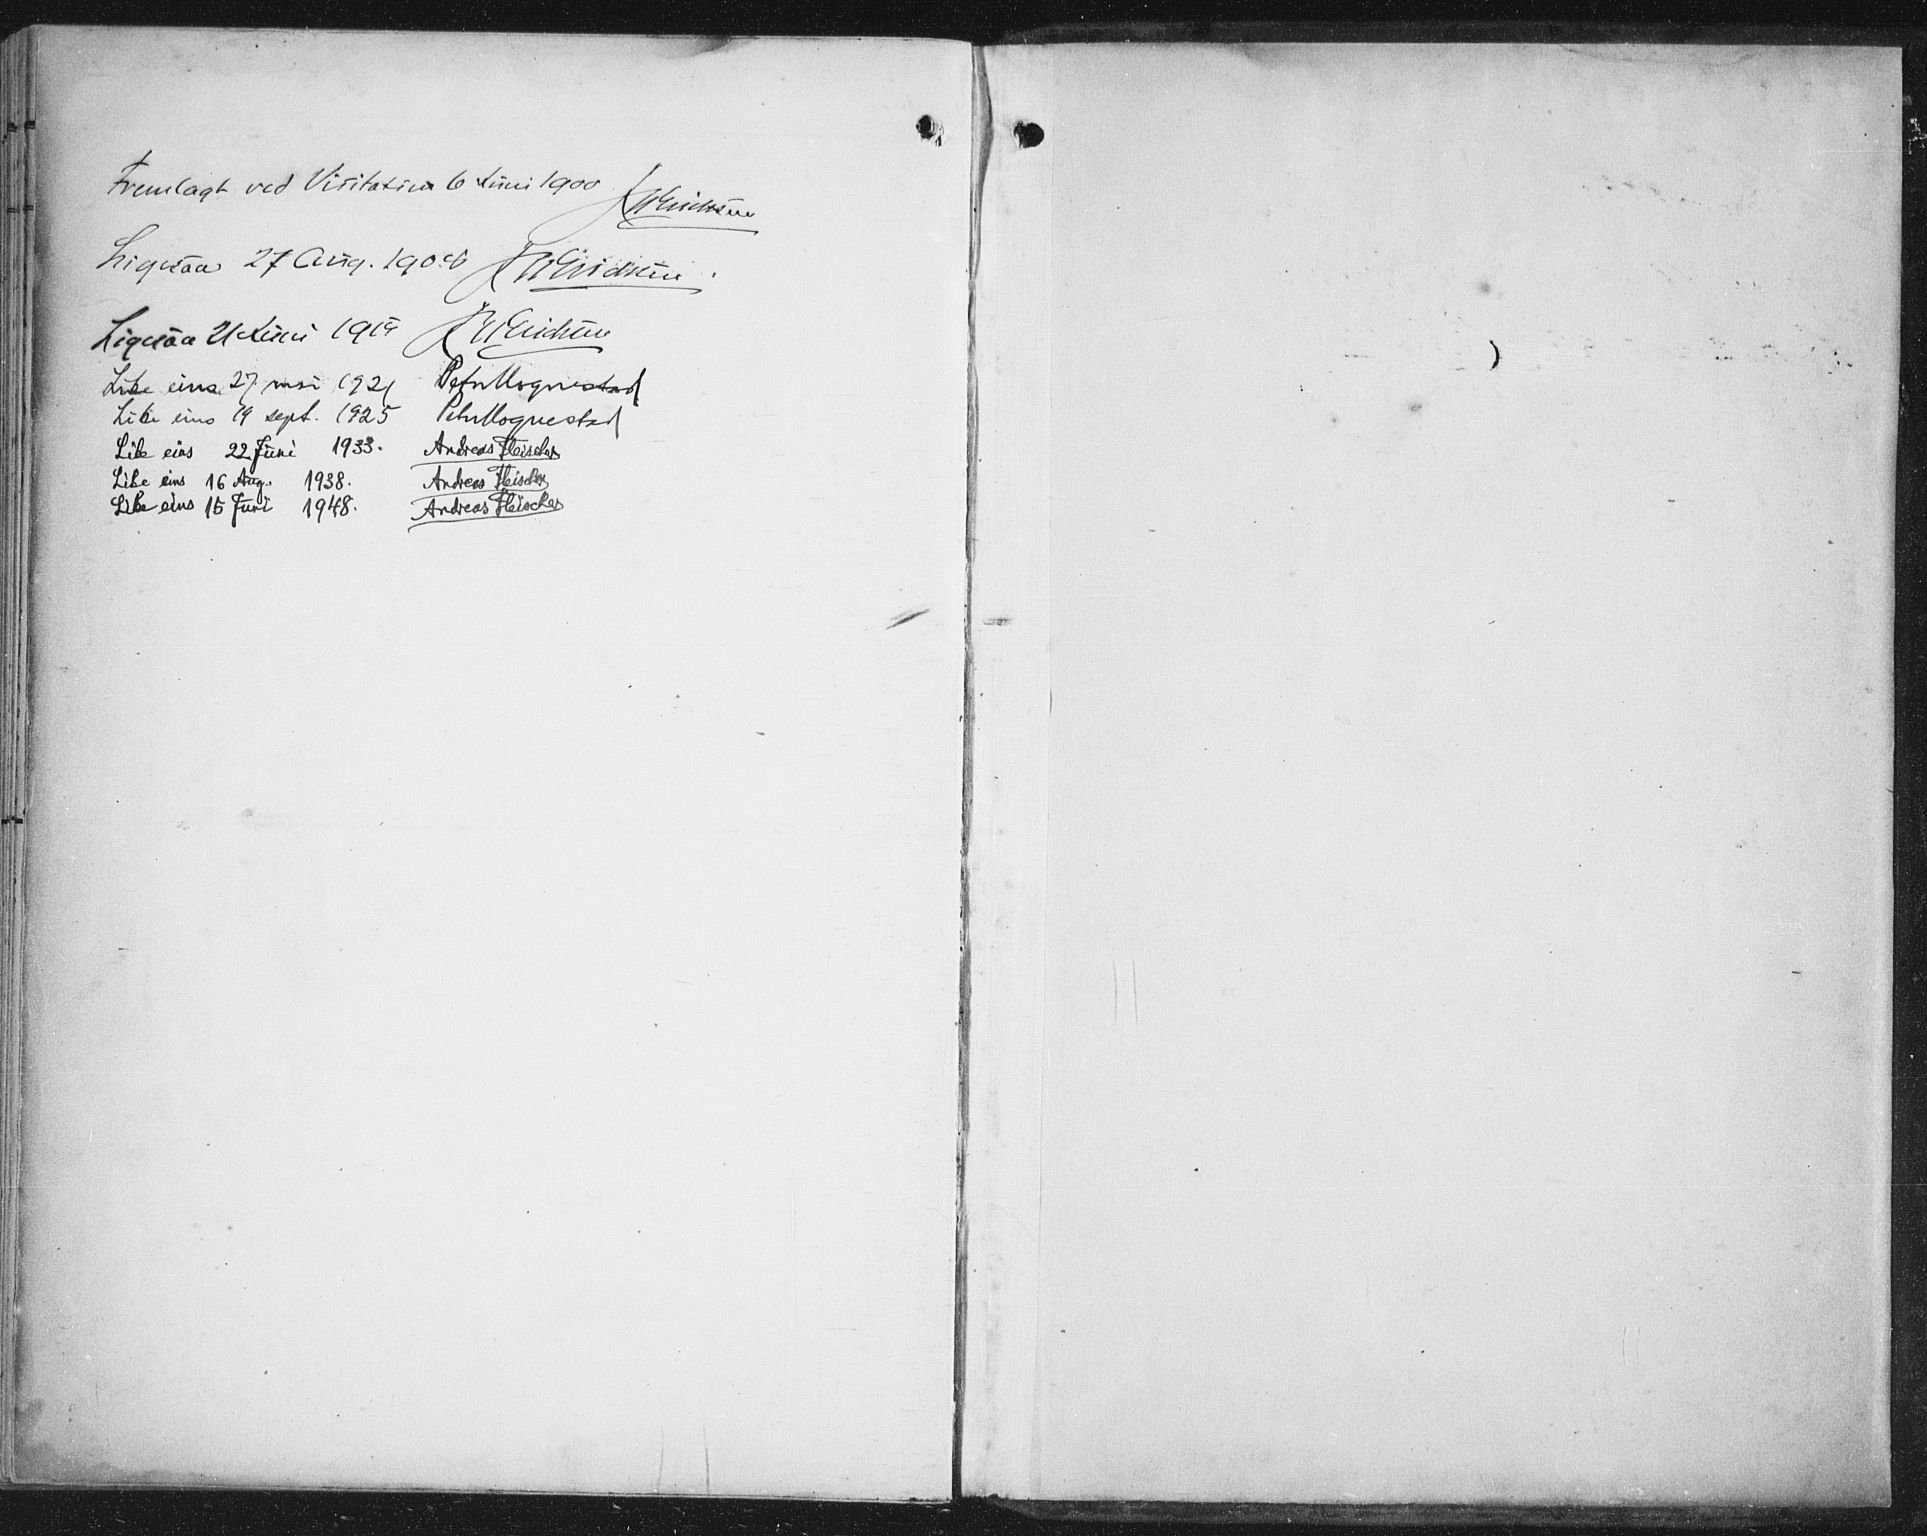 Fremlagt ved Visitatsen 6 Juni 1900 JWErichsen
Ligesaa 27 Aug. 1906 JWErichsen
Ligesaa 21 Juni 1914 JWErichsen
Like eins 27 mai 1921 Peter Hognestad
Like eins 19 sept. 1925 Peter Hognestad
Like eins 22 Juni 1933. Andreas Fleischer
Like eins 16 Aug. 1938. Andreas Fleischer
Like eins 15 Juni 1948. Andreas Fleischer